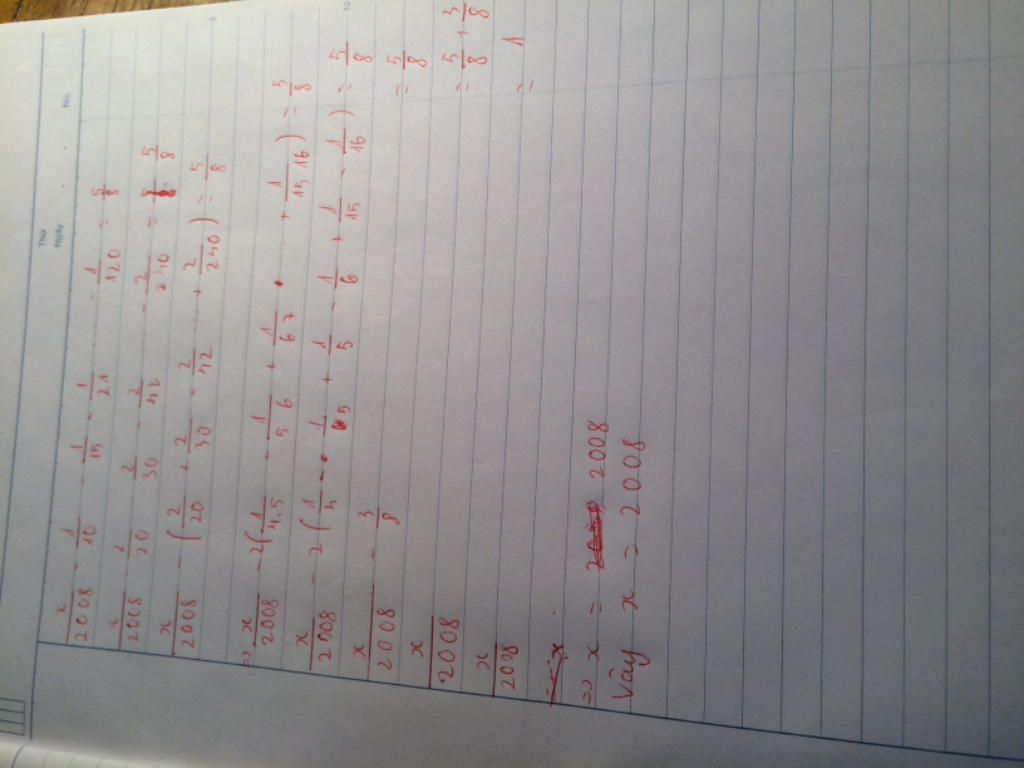 Thứ
Ngày No.
x/2008 - 1/10 - 1/15 - 1/21 ... - 1/120 = 5/8
x/2008 - 2/20 - 2/30 - 2/42 ... - 2/240 = 5/8
x/2008 - (2/20 + 2/30 - 2/42 ... + 2/240) = 5/8
=> x/2008 - 2(1/4.5 - 1/5 6 + 1/6 7 + ... + 1/15.16) = 5/8
x/2008 - 2(1/4 - 1/5 + 1/5 - 1/6 + 1/15 - 1/16) = 5/8
x/2008 - 3/8 = 5/8
x/2008 = 5/8 + 3/8
x/2008 = 1
=> x = 2008
Vậy x = 2008